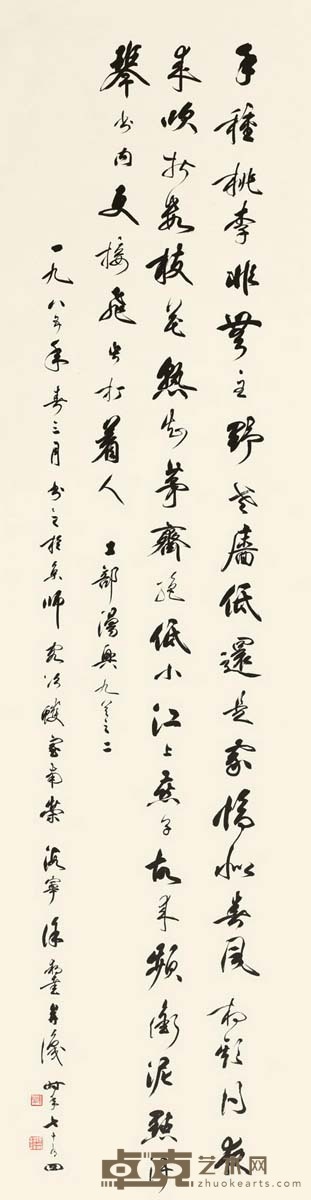 手種桃李非無主野老牆低還是家恰似春風相欺得夜
來吹折數枝花熟知茅齋絕低小江上燕子故來頻銜泥點污
琴書內更接飛虫打着人 工部漫興九首之二
一九八五年春三月書之於京師 海寧徐 時年七十有四
卓克艺术网
zhuokearts.com